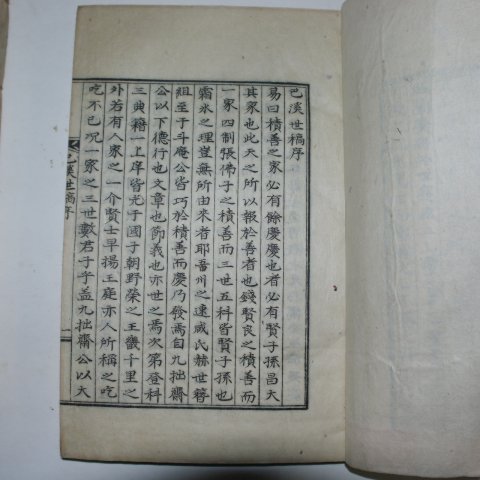 巴溪世稿序
易曰積善之家必有餘慶慶也者必有賢子孫昌大
其家也此天之所以報於善者也錢賢良之積善而
一家四制張佛子之積善而三世五科皆賢子孫也
霜氷之理豈無所由來者耶晉州之遠咸氏赫世簪
組至于斗庵公皆巧於積善而慶乃發焉自九拙齋
公以下德行也文章也節義也亦世之焉次第登科
三典籍一上庠皆光于國子朝野榮之王畿千里之
外若有人家之一介賢士早揚王庭亦人所稱之吃
吃不已况一家之三世數君子乎盖九拙齋公以大
巴溪世稿序
一